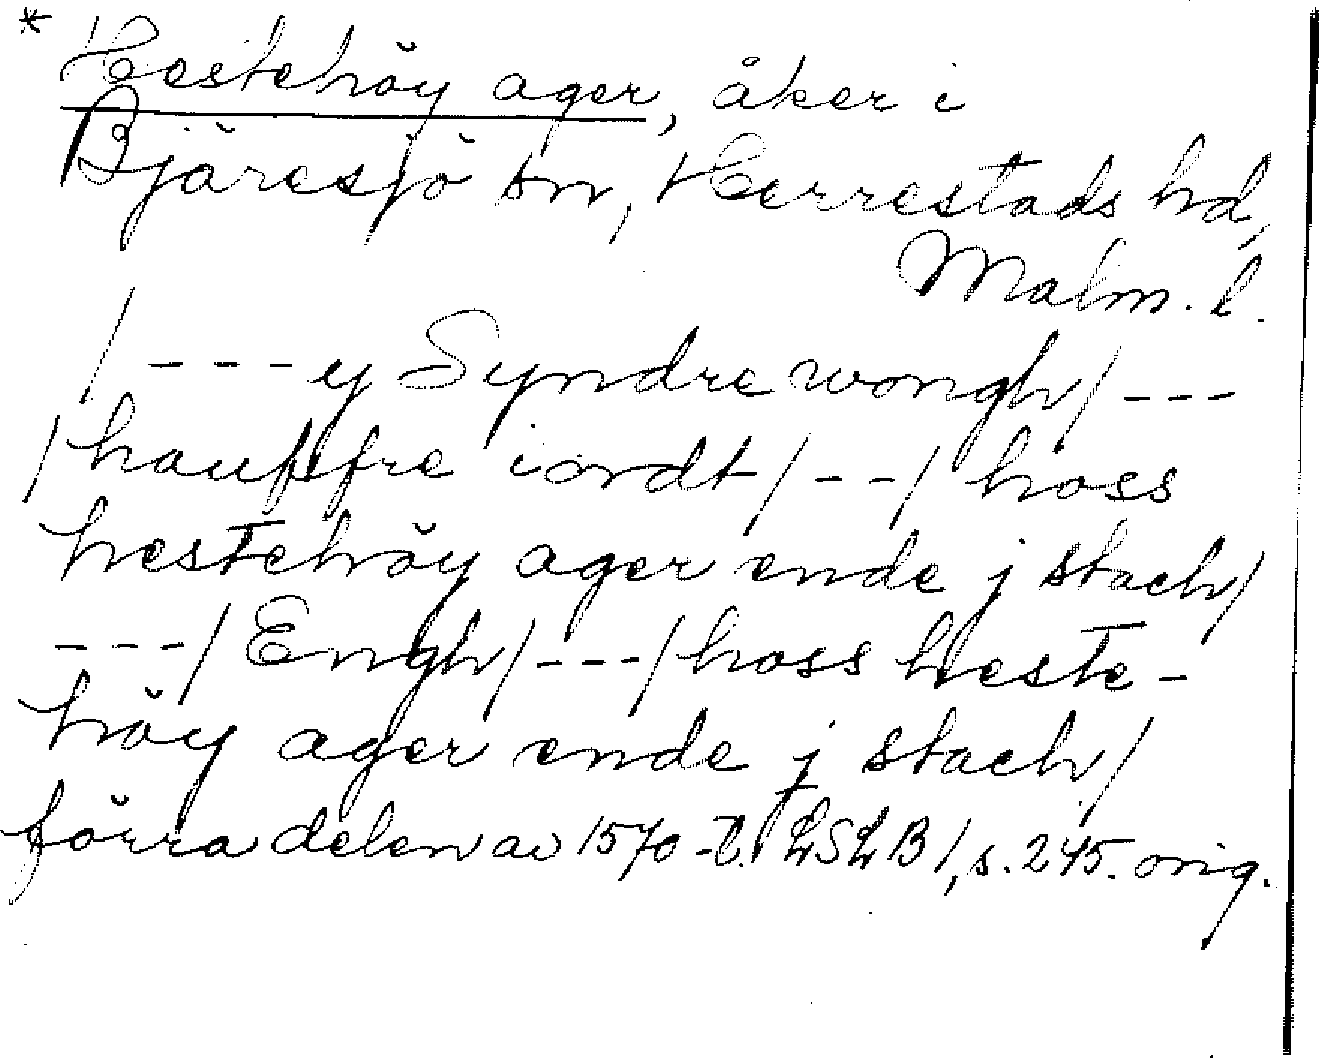 * Hestehöy ager, åker i
Bjäresjö sn, Herrestads hd,
Malm. l.
/ --- y Syndre wongh / ---
/ hauffre iordt / -- / hoss
hestehöy ager ende j stach /
--- / Engh / --- / hoss heste-
höy ager ende j stach /
förra delen av 1570-t. LSLB 1, s. 245. orig.